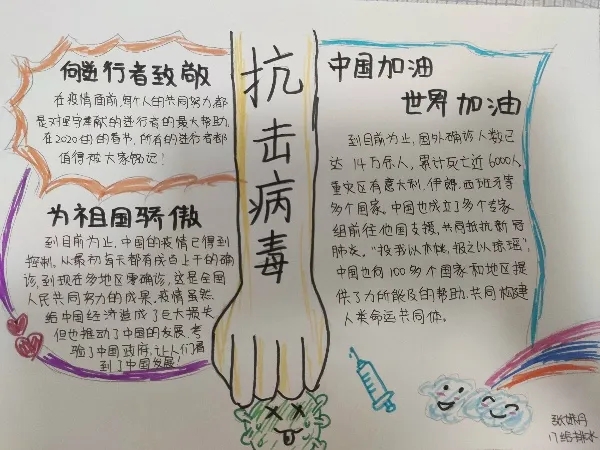 向逆行者致敬
在疫情面前,每个人的共同努力,都
是对坚守奉献的逆行者的最大帮助,
在2020年的春节,所有的逆行者都
值得被大家铭记!
为祖国骄傲
到目前为止,中国的疫情已得到
控制,从最初每天都有成百上千的确
诊,到现在多地区零确诊,这是全国
人民共同努力的成果,疫情虽然
给中国经济造成了巨大损失
但也推动了中国的发展,考
验了中国政府,让人们看
到了中国发展!
抗击病毒
中国加油
世界加油
到目前为止,国外确诊人数已
达14万余人,累计死亡近6000人
重灾区有意大利、伊朗、西班牙等
多个国家。中国也成立了多个专家
组前往他国支援,共同抵抗新冠
肺炎。"投我以木桃,报之以琼瑶",
中国也向100多个国家和地区提
供了力所能及的帮助,共同构建
人类命运共同体。
17给排水